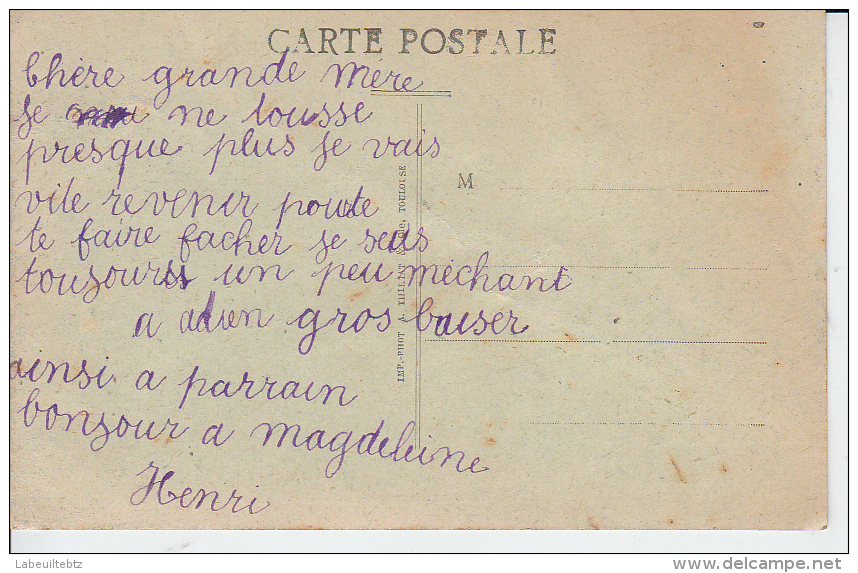 CARTE POSTALE
Chère grande mère
Je ne tousse
presque plus je vais
vite revenir pour te
te faire facher je suis
toujours un peu méchant
a adien gros baiser
ainsi a parrain
bonjour a magdeleine
Henri
M
IMP.-PHOT A. THIRIAT TOULOUSE
Labeuiltebtz
www.delcampe.net